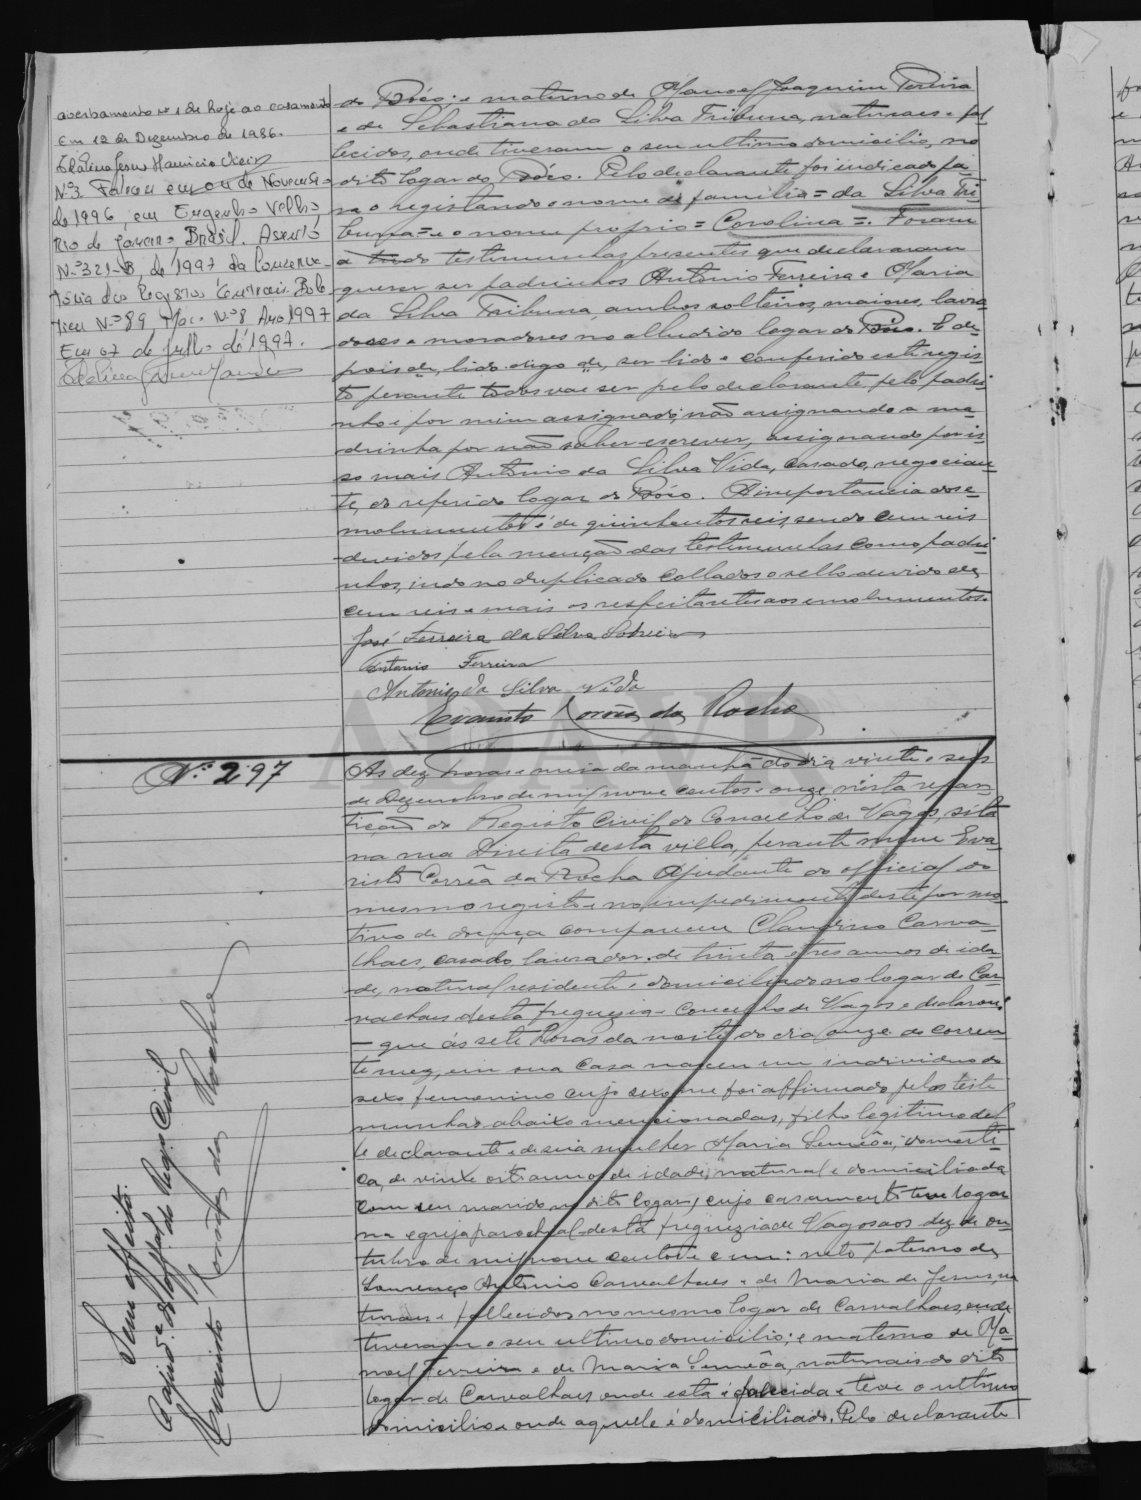 averbamento nº 1 de hoje ao casamento
Em 12 de Dezembro de 1986.
Nº 3. Faleceu em 04 de Novembro
de 1996, em Engenho Velho,
Rio de Janeiro, Brasil. Assento
Nº 321-B, de 1997 da Conserva-
tória dos Registos Centrais. Bole
tim Nº 89, Maço Nº 8 Ano 1997
Em 07 de Julho de 1997.
do Bóco: e materno de Manoel Joaquim Pereira
e de Sebastiana da Silva Tribuna, naturaes e fal
lecidos, onde tiveram o seu ultimo domicilio, no
dito logar do Bóco. Pelo declarante foi indicado pa-
ra o registando o nome de familia = da Silva Tri
buna = e o nome proprio = Carolina =. Foram
a tudo testemunhas presentes que declararam
querer ser padrinhos Antonio Ferreira e Maria
da Silva Tribuna, ambos solteiros, maiores, lavra
dores e moradores no alludido logar do Bóco. E de
pois de, lido digo de, ser lido e conferido este regis
to perante todos vae ser pelo declarante, pelo padri
nho e por mim assignado, não assignando a ma-
drinha por não saber escrever, assignando por is-
so mais Antonio da Silva Vida, casado, negocian-
te, do referido logar do Bóco. A importancia dos e-
molumentos é de quinhentos reis sendo cem reis
devidos pela menção das testemunhas como padri
nhos, indo no duplicado collados o sello devido de
cem reis e mais os respeitantes aos emolumentos.
José Ferreira da Silva Sobreiro
Antonio Ferreira
Antonio da Silva Vida
Evaristo Corrêa da Rocha
ADAVR
Nº 297
As dez horas e meia da manhã do dia vinte e seis
de Dezembro de mil nove centos e onze, n'esta repar
tição do Registo Civil do Concelho de Vagos, sita
na rua Direita desta villa, perante mim Eva-
risto Corrêa da Rocha Ajudante do official do
mesmo registo e no impedimento deste por mo-
tivo de doença compareceu Claudino Carva-
lhaes, casado, lavrador, de trinta e tres annos de ida-
de, natural, residente e domiciliado no logar de Car-
valhaes, desta freguezia e concelho de Vagos e declarou:
— que ás sete horas da noite do dia onze do corren-
te mez, em sua casa nasceu um individuo do
sexo femenino cujo sexo me foi affirmado pelas teste
munhas abaixo mencionadas, filho legitimo del
le declarante e de sua mulher Maria Semeôa, domesti
ca, de vinte e oito annos de idade, natural e domiciliada
com seu marido no dito logar, cujo casamento teve logar
na egreja parochial desta freguezia de Vagos aos dez de ou
tubro de mil nove centos e um: neto paterno de
Lourenço Antonio Carvalhaes e de Maria de Jesus, na
turaes e fallecidos no mesmo logar de Carvalhaes, onde
tiveram o seu ultimo domicilio; e materno de Ma-
noel Ferreira e de Maria Semeôa, naturais do dito
logar de Carvalhaes onde esta é falecida e teve o ultimo
domicilio e onde aquele é domiciliado. Pelo declarante
Sem effeito.
O ajud.e do offi.al do Reg.o Civil
Evaristo Corrêa da Rocha